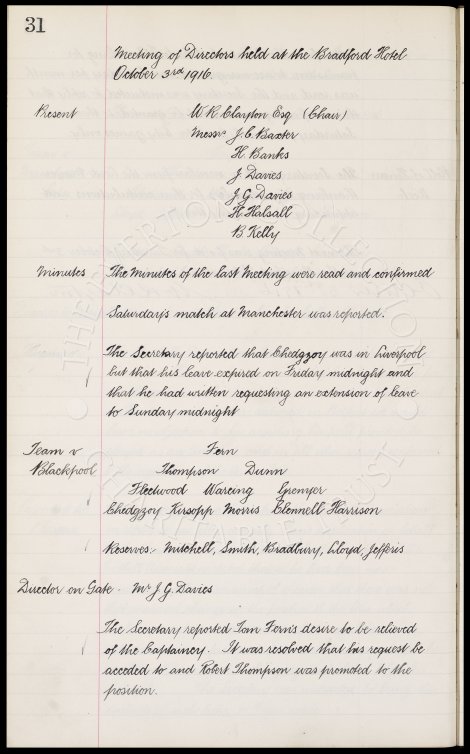 31
Meeting of Directors held at the Bradford Hotel
October 3rd 1916.
Present W. R. Clayton Esq (Chair)
Messrs J. C. Baxter
H. Banks
J. Davies
J. G. Davies
H. Halsall
B. Kelly
Minutes The Minutes of the last Meeting were read and confirmed
Saturday's match at Manchester was reported.
The Secretary reported that Chedgzoy was in Liverpool
but that his leave expired on Friday midnight and
that he had written requesting an extension of leave
to Sunday midnight
Team v Fern
Blackpool Thompson Dunn
Fleetwood Wareing Grenyer
Chedgzoy Kirsopp Morris Clennell Harrison
Reserves:- Mitchell, Smith, Bradbury, Lloyd, Jefferis
Director on Gate. Mr J. G. Davies
The Secretary reported Tom Fern's desire to be relieved
of the Captaincy. It was resolved that his request be
acceded to and Robert Thompson was promoted to the
position.
THE EVERTON COLLECTION
CHARITABLE TRUST